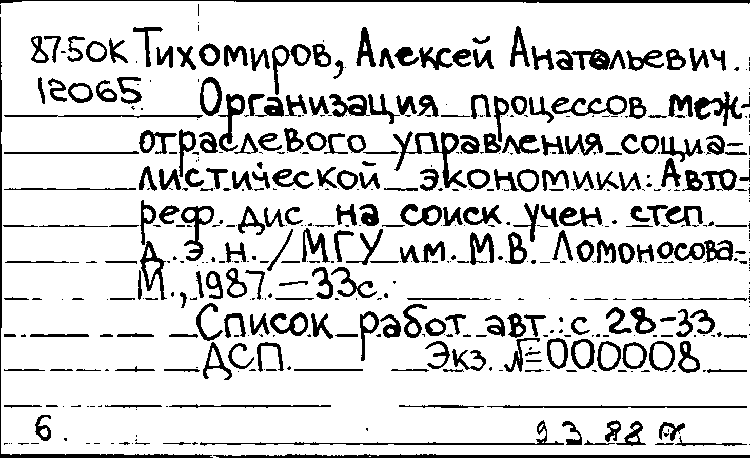 87-50К Тихомиров, Алексей Анатольевич.
12065 Организация процессов меж-
отраслевого управления социа-
листической экономики: Авто-
реф. дис. на соиск. учен. степ.
д. э. н. / МГУ им. М.В. Ломоносова.-
М., 1987. – 33с.
Список работ авт.: с. 28-33.
ДСП. Экз. № 000008
6. 9.3.88